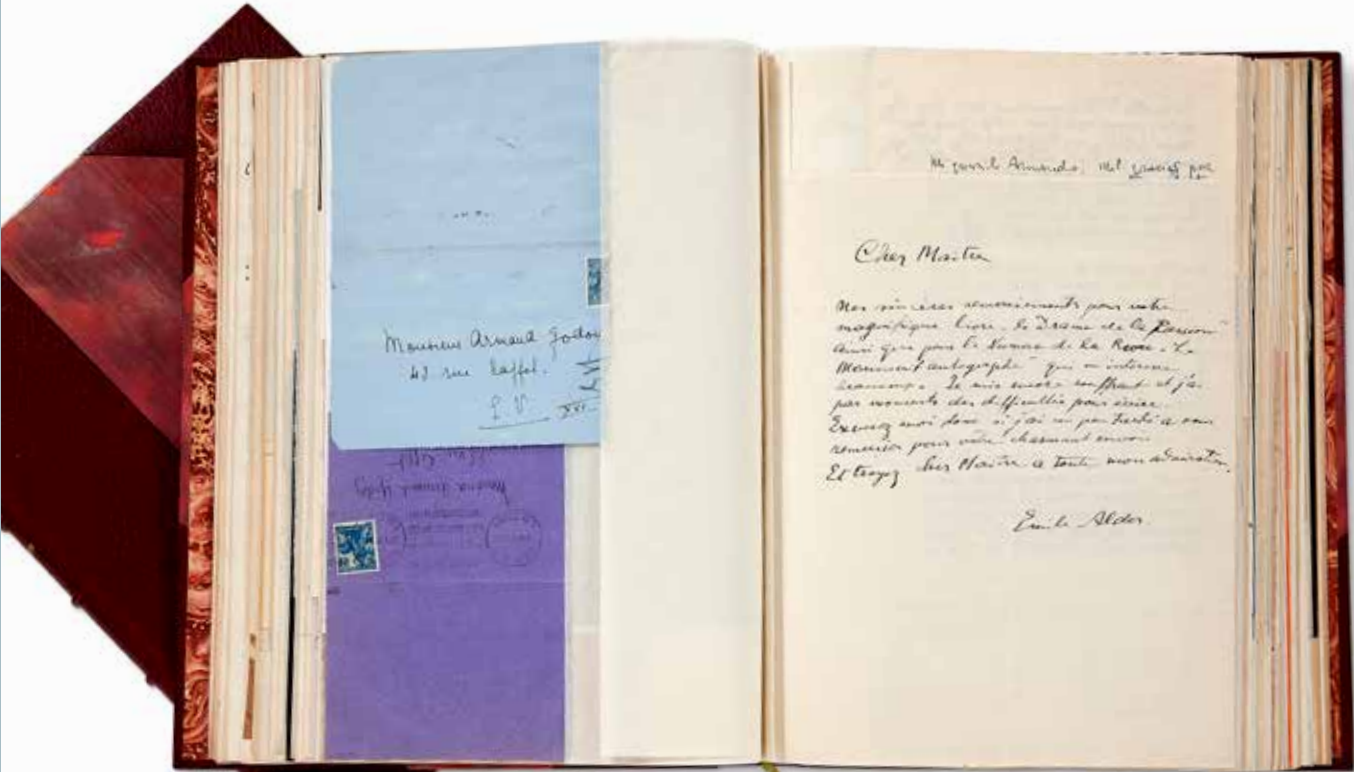 Monsieur Armand Godoy
43 rue Raffet.
XVI
Armando; mil gracias por
Cher Maître
Mes sincères remerciements pour votre
magnifique livre. le Drame de la Passion
Ainsi que pour le Numéro de la Revue. Le
Manuscrit autographe" qui m'intéresse
beaucoup. Je suis encore souffrant et j'ai
par moments des difficultés pour écrire.
Excusez moi donc si j'ai un peu tardé a vous
remercier pour votre charmant envoi
Et croyez cher Maître a toute mon admiration.
Emile Aldor.